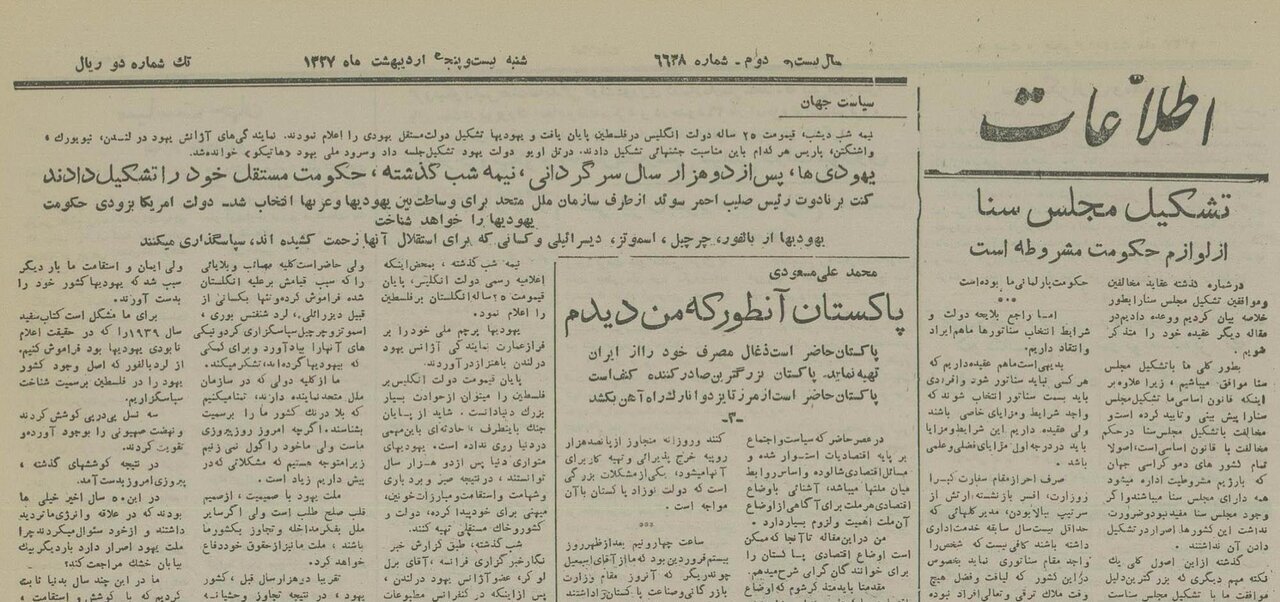 سال بیست و دوم - شماره ۶۶۳۸
شنبه بیست و پنجم اردیبهشت ماه ۱۳۲۷
تك شماره دو ریال
اطلاعات
تشکیل مجلس سنا
از لوازم حکومت مشروطه است
درشماره گذشته عقاید مخالفین
وموافقین تشکیل مجلس سنارابطور
خلاصه بیان کردیم ووعده دادیم در
مقاله دیگر عقیده خود را متذکر
شویم .
بطور کلی ما باتشکیل مجلس
سنا موافق میباشیم ، زیرا علاوه بر
اینکه قانون اساسی ما تشکیل مجلس
سنارا پیش بینی و تایید کرده است و
مخالفت باتشکیل مجلس سنا درحکم
مخالفت با قانون اساسی است، اصولا
تمام کشور های دمو کراسی جهان
که بارژیم مشروطیت اداره میشود
همه دارای مجلس سنا میباشند واگر
وجود مجلس سنا مفید نبود وضرورت
نداشت این کشورها اصرار در تشکیل
دادن آن نداشتند .
گذشته ازاین اصول کلی یك
نکته مهم دیگری که بزرگترین دلیل
موافقت ما با تشکیل مجلس سناست
حکومت پارلمانی ما بوده است
***
اما راجع بلایحه دولت و
شرایط انتخاب سناتورها ماهم ایراد
وانتقاد داریم.
بدیهی است ماهم عقیده داریم که
هر کسی نباید سناتور شود وافرادی
باید بسمت سناتور انتخاب شوند که
واجد شرایط ومزایای خاصی باشند
ولی عقیده داریم این شرایط ومزایا
باید دردرجه اول مزایای فضلی وعلمی
باشد .
صرف احراز مقام سفارت کبرا
ووزارت، افسر بازنشسته ارتش از
سرتیپ ببالا بودن، مدیر کلهائی که
حداقل بیست سال سابقه خدمت اداری
داشته باشند کافی نیست که شخص را
واجد مقام سناتوری نماید بخصوص
دراین کشور که لیاقت وفضل هیچ
وقت ملاك ترقی و تعالی افراد نبوده
سیاست جهان
نیمه شب دیشب، قیمومت ۲۵ ساله دولت انگلیس درفلسطین پایان یافت و یهودیها تشکیل دولت مستقل یهودی را اعلام نمودند. نمایندگی های آژانس یهود در لندن، نیویورك ،
واشنگتن، پاریس هر کدام باین مناسبت جشنهائی تشکیل دادند. درتل اویو دولت یهود تشکیل جلسه داد وسرود ملی یهود «هاتیکو» خوانده شد.
یهودی ها، پس از دوهزار سال سر گردانی، نیمه شب گذشته، حکومت مستقل خود را تشکیل دادند
کنت برنادوت رئیس صلیب احمر سوئد ازطرف سازمان ملل متحد برای وساطت بین یهودیها وعربها انتخاب شد - دولت امریکا بزودی حکومت
یهودیها را خواهد شناخت
یهودیها از بالفور، چرچیل، اسموتز، دیسرائیلی و کسانی که برای استقلال آنها زحمت کشیده اند، سپاسگذاری میکنند
محمد علی مسعودی
پاکستان آنطور که من دیدم
پاکستان حاضر است ذغال مصرف خود را از ایران
تهیه نماید. پاکستان بزرگترین صادر کننده کنف است
پاکستان حاضر است از مرز تا یزد و انارك راه آهن بکشد
-۳-
درعصر حاضر که سیاست و اجتماع
بر پایه اقتصادیات استوار شده و
مسائل اقتصادی شالوده واساس روابط
میان ملتها میباشد، آشنائی باوضاع
اقتصادی هر ملت برای آگاهی از اوضاع
آن ملت اهمیت و لزوم بسیار دارد .
من دراین مقاله تا آنجا که ممکن
است اوضاع اقتصادی پاکستان را
برای خوانندگان گرامی شرح میدهم.
مقدمتا باید متذکر شوم که اوضاع
کنند وروزانه متجاوز از پانصد هزار
روپیه خرج پذیرائی وتهیه کار برای
آنها میشود ، یکی از مشکلات بزرگی
است که دولت نوزاد پاکستان باآن
مواجه است .
***
ساعت چهارونیم بعدازظهر روز
بیستم فروردین بود که ما از آقای اسمعیل
چوندریگر که آنروز مقام وزارت
بازرگانی وصناعت پاکستان را داشتند
نیمه شب گذشته ، بمحض اینکه
اعلامیه رسمی دولت انگلیس، پایان
قیمومت ۲۵ ساله انگلستان برفلسطین
را اعلام نمود.
یهودیها پرچم ملی خودرا بر
فرازعمارت نمایندگی آژانس یهود
درلندن باهتزاز درآوردند.
پایان قیمومت دولت انگلیس بر
فلسطین را میتوان ازحوادث بسیار
بزرك دنیا دانست . شاید از پایان
جنك باینطرف ، حادثه ای باین مهمی
دردنیا روی نداده است. یهودیهای
متواری دنیا پس ازدو هزار سال
توانستند ، درنتیجه صبر و برد باری
وشهامت واستقامت ومبارزات خونین،
میهنی برای خودپیدا کرده، دولت و
کشور وخاك مستقلی تهیه کنند.
شب گذشته، طبق گزارش خبر
نگارخبر گزاری فرانسه ، آقای برل
لوکر، عضو آژانس یهود درلندن ،
پس ازاینکه در کنفرانس مطبوعات
ولی حاضر است کلیه مصائب وبلایائی
را که سبب قیامش برعلیه انگلستان
شده فراموش کرده وتنها بکسانی از
قبیل دیزرائلی، لرد شفتس بوری ،
اسموتز وچرچیل سپاسگزاری کرده و نیکی
های آنهارا بیاد آورد وبرای کمکی
که بیهودیها کرده اند، تشکر میکند.
ما از کلیه دولی که در سازمان
ملل متحد نماینده دارند، تمنا میکنیم
که بلا درنك کشور ما را برسمیت
بشناسند. اگرچه امروز روز پیروزی
ماست ولی ماخود را گول نمی زنیم
زیرا متوجه هستیم که مشکلاتی که در
پیش داریم زیاد است .
ملت یهود با صمیمیت ، ازصمیم
قلب صلح طلب است ولی اگر سایر
ملل بفکر مداخله و تجاوز بکشور ما
باشند ، ملت ما نیز ازحقوق خود دفاع
خواهد کرد.
تقریبا دوهزار سال قبل ، کشور
یهود در نتیجه تجاوز وحشیانه
ولی ایمان و استقامت ما بار دیگر
سبب شد که یهودیها کشور خود را
بدست آورند.
برای ما مشکل است کتاب سفید
سال ۱۹۳۹ را که در حقیقت اعلام
نابودی یهودیها بود فراموش کنیم.
از لرد بالفور که اصل وجود کشور
یهود را در فلسطین برسمیت شناخت
سپاسگزاریم.
سه نسل پی درپی کوشش کردند
و نهضت صهیونی را بوجود آورده و
تقویت کردند.
در نتیجه کوششهای گذشته ،
پیروزی امروز بدست آمد.
در این ۵۰ سال اخیر خیلی ها
بودند که در علاقه و انرژی ما تردید
داشتند و از خود سئوال میکردند چرا
ملت یهود اصرار دارد باردیگر بیك
بیابان خشك مراجعت کند؟
ما در این چند سال بدنیا ثابت
کردیم که با کوشش و استقامت ،